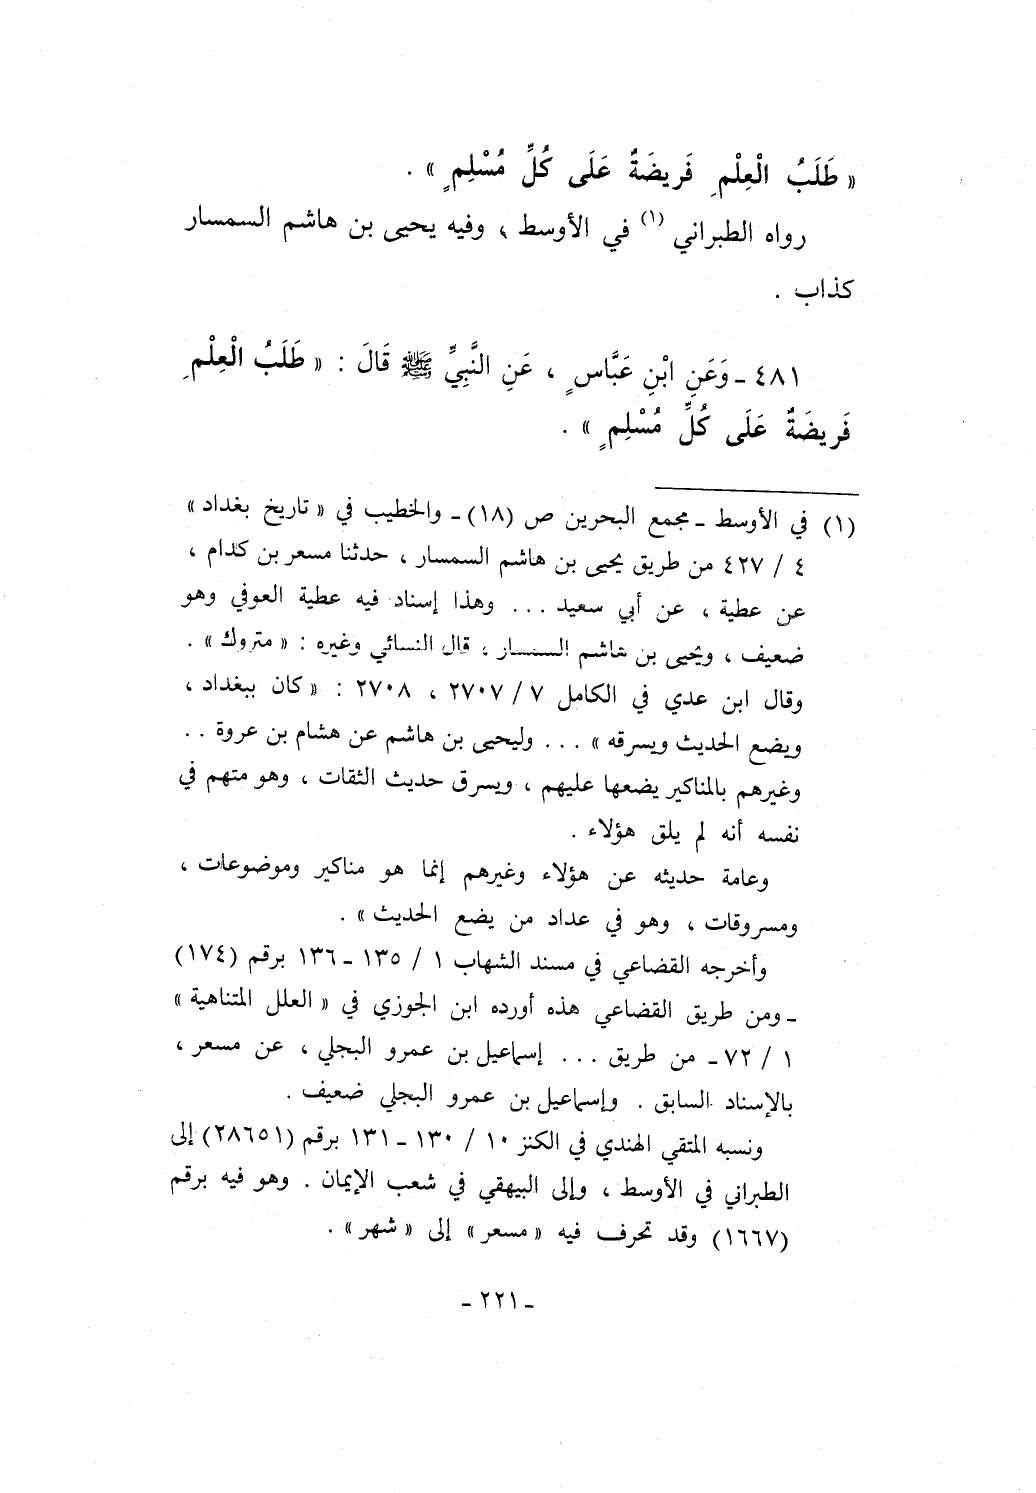 « طَلَبُ الْعِلْمِ فَرِيضَةٌ عَلَى كُلِّ مُسْلِمٍ » .
رواه الطبراني (١) في الأوسط ، وفيه يحيى بن هاشم السمسار
كذاب .
٤٨١ - وَعَنِ ابْنِ عَبَّاسٍ ، عَنِ النَّبِيِّ ﷺ قَالَ : « طَلَبُ الْعِلْمِ
فَرِيضَةٌ عَلَى كُلِّ مُسْلِمٍ » .
(١) في الأوسط - مجمع البحرين ص (١٨) - والخطيب في « تاريخ بغداد »
٤ / ٤٢٧ من طريق يحيى بن هاشم السمسار ، حدثنا مسعر بن كدام ،
عن عطية ، عن أبي سعيد ... وهذا إسناد فيه عطية العوفي وهو
ضعيف ، ويحيى بن هاشم السمسار ، قال النسائي وغيره : « متروك » .
وقال ابن عدي في الكامل ٧ / ٢٧٠٧ ، ٢٧٠٨ : « كان ببغداد ،
ويضع الحديث ويسرقه » ... وليحيى بن هاشم عن هشام بن عروة ..
وغيرهم بالمناكير يضعها عليهم ، ويسرق حديث الثقات ، وهو متهم في
نفسه أنه لم يلق هؤلاء .
وعامة حديثه عن هؤلاء وغيرهم إنما هو مناكير وموضوعات ،
ومسروقات ، وهو في عداد من يضع الحديث » .
وأخرجه القضاعي في مسند الشهاب ١ / ١٣٥ - ١٣٦ برقم (١٧٤)
- ومن طريق القضاعي هذه أورده ابن الجوزي في « العلل المتناهية »
١ / ٧٢ - من طريق ... إسماعيل بن عمرو البجلي ، عن مسعر ،
بالإسناد السابق . وإسماعيل بن عمرو البجلي ضعيف .
ونسبه المتقي الهندي في الكنز ١٠ / ١٣٠ - ١٣١ برقم (٢٨٦٥١) إلى
الطبراني في الأوسط ، وإلى البيهقي في شعب الإيمان . وهو فيه برقم
(١٦٦٧) وقد تحرف فيه « مسعر » إلى « شهر » .
- ٢٢١ -